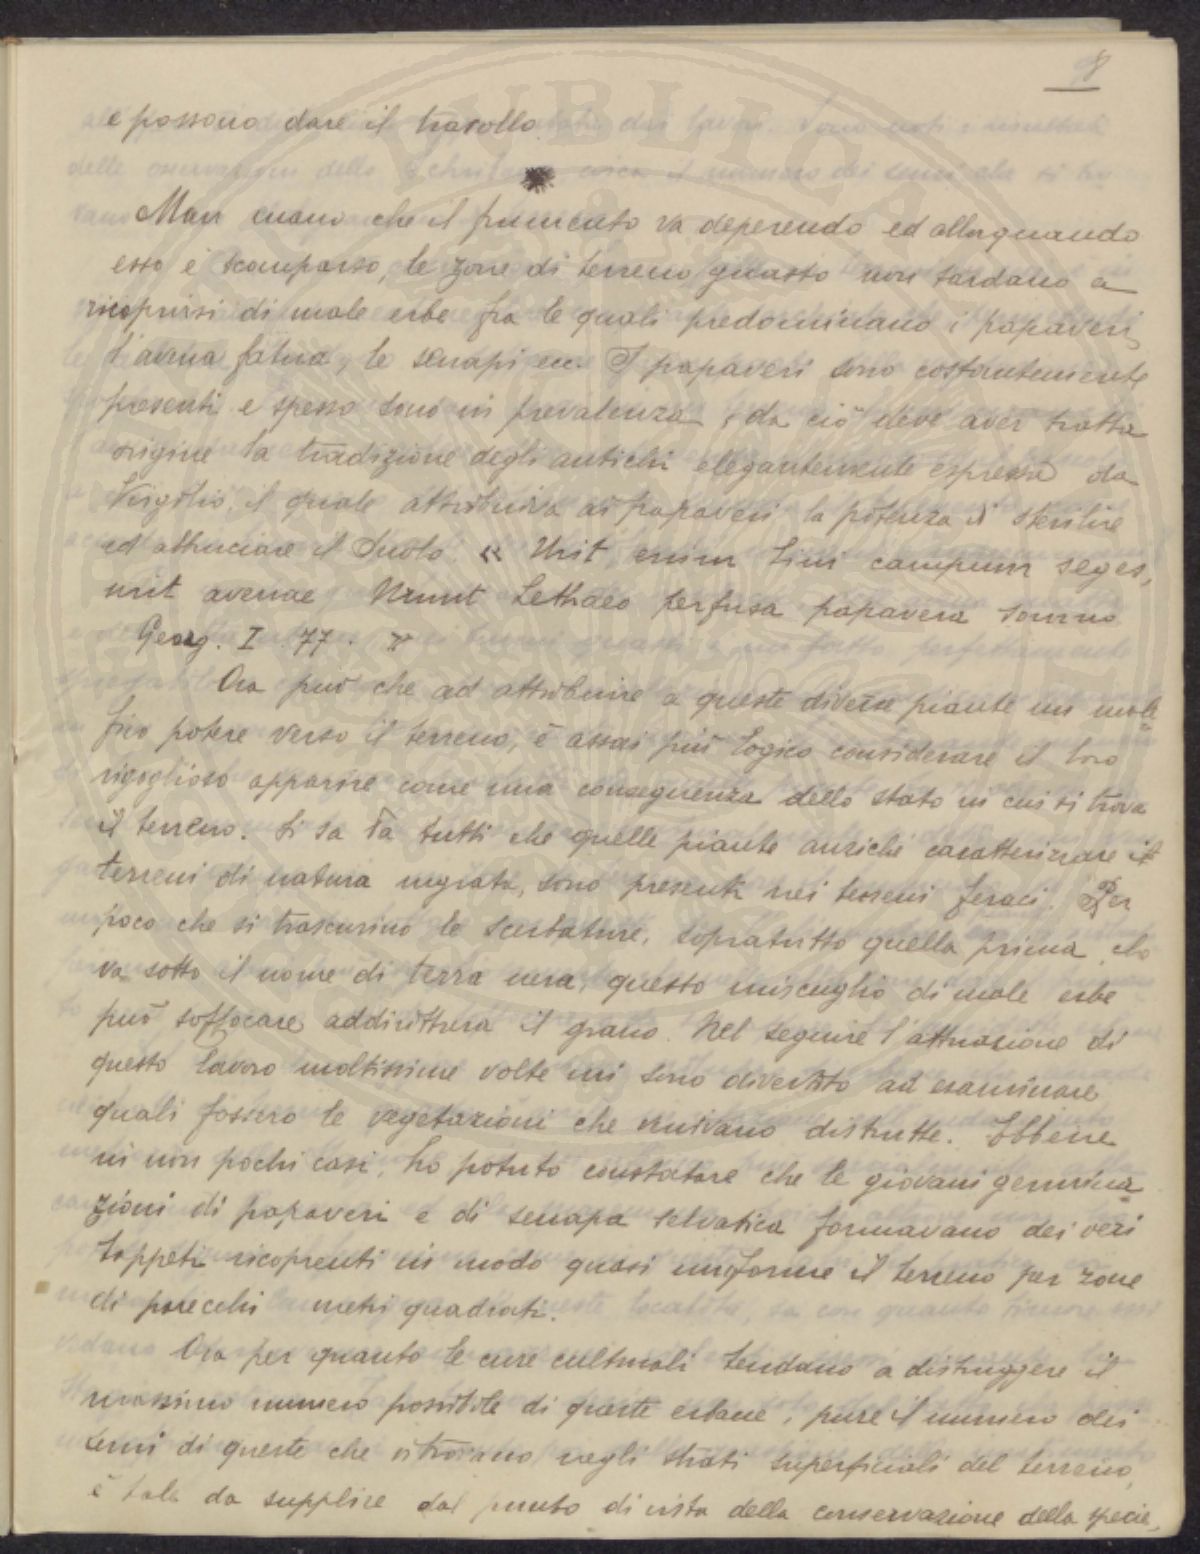 8
e possono dare il tracollo.
Man mano che il frumento va deperendo ed allorquando
esso è scomparso, le zone di terreno guasto non tardano a
ricoprirsi di male erbe fra le quali predominano i papaveri,
l'avena fatua, le senapi ecc. I papaveri sono costantemente
presenti e spesso sono in prevalenza, da ciò deve aver tratta
origine la tradizione degli antichi elegantemente espressa da
Virgilio, il quale attribuiva ai papaveri la potenza di sterilire
ed abbruciare il suolo. « Urit enim lini campum seges,
urit avenae Urunt Lethaeo perfusa papavera somno
Georg. I. 77. »
Ora più che ad attribuire a queste diverse piante un male
fico potere verso il terreno, è assai più logico considerare il loro
rigoglioso apparire come una conseguenza dello stato in cui si trova
il terreno. Si sa da tutti che quelle piante anziché caratterizzare i
terreni di natura ingrata, sono presenti nei terreni feraci. Per
poco che si trascurino le scerbature, sopratutto quella prima che
va sotto il nome di terra nera, questo miscuglio di male erbe
può soffocare addirittura il grano. Nel seguire l'attuazione di
questo lavoro moltissime volte mi sono divertito ad esaminare
quali fossero le vegetazioni che venivano distrutte. Ebbene
in non pochi casi, ho potuto constatare che le giovani germina
zioni di papaveri e di senapa selvatica formavano dei veri
tappeti ricoprenti in modo quasi uniforme il terreno per zone
di parecchi metri quadrati.
Ora per quanto le cure culturali tendano a distruggere il
massimo numero possibile di queste erbacce, pure il numero dei
semi di queste che si trovano negli strati superficiali del terreno,
è tale da supplire dal punto di vista della conservazione della specie,